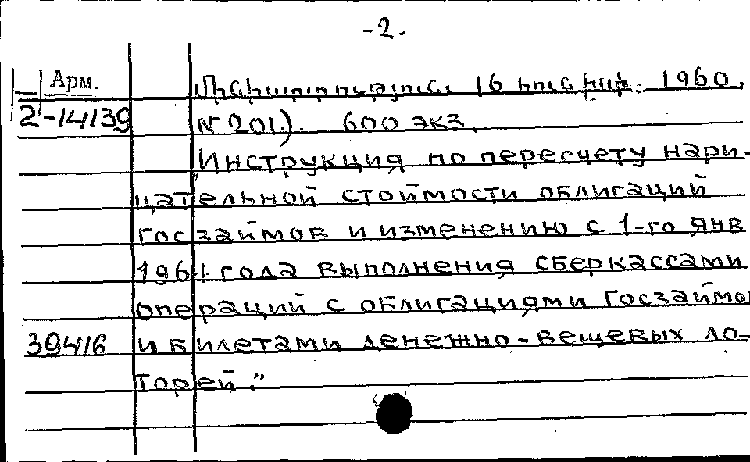 -2.
Арм.
2-14139
16 1960,
N 201). 600 экз.
"Инструкция по пересчету нари-
цательной стоймости облигаций
госзаймов и изменению с 1-го янв
1961 года выполнения сберкассами
операций с облигациями Госзаймов
39416 и билетами денежно-вещевых ло-
торей."